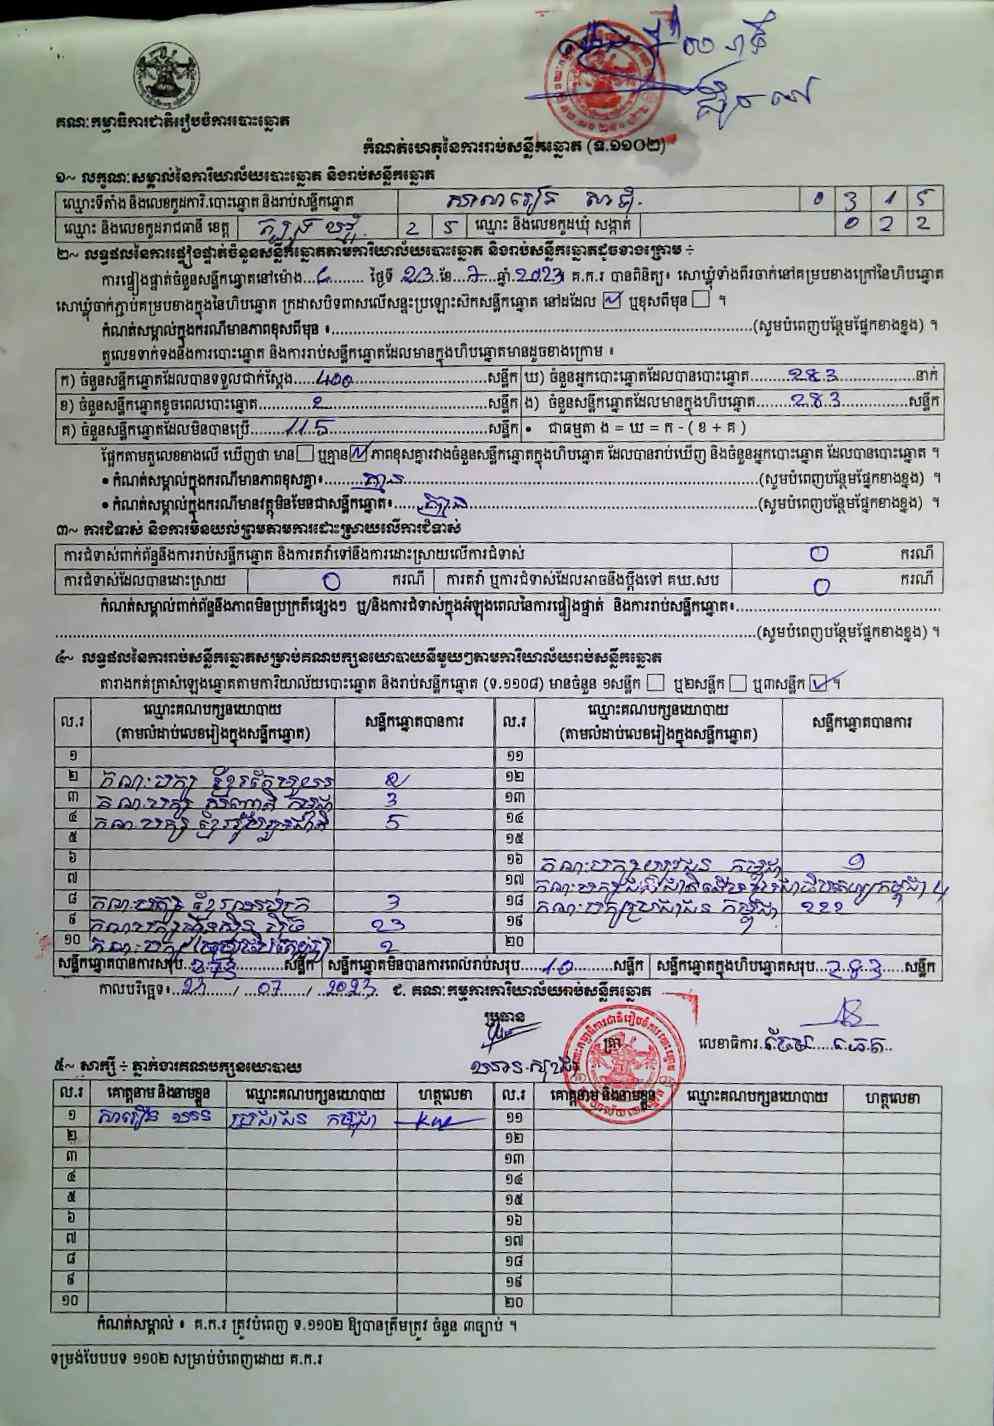 គណៈកម្មាធិការជាតិរៀបចំការបោះឆ្នោត
កំណត់ហេតុនៃការរាប់សន្លឹកឆ្នោត (ទ.១១០២)
១~ លក្ខណៈសម្គាល់នៃការិយាល័យបោះឆ្នោត និងរាប់សន្លឹកឆ្នោត
ឈ្មោះទីតាំង និងលេខកូដការិ.បោះឆ្នោត និងរាប់សន្លឹកឆ្នោត សាលារៀន 0 3 1 5
ឈ្មោះ និងលេខកូដរាជធានី ខេត្ត ត្បូងឃ្មុំ 2 5 ឈ្មោះ និងលេខកូដឃុំ សង្កាត់ 0 2 2
២~ លទ្ធផលនៃការផ្ទៀងផ្ទាត់ចំនួនសន្លឹកឆ្នោតតាមការិយាល័យបោះឆ្នោត និងរាប់សន្លឹកឆ្នោតដូចខាងក្រោម ÷
ការផ្ទៀងផ្ទាត់ចំនួនសន្លឹកឆ្នោតនៅម៉ោង ថ្ងៃទី 23 ខែ 7 ឆ្នាំ 2023 គ.ក.រ បានពិនិត្យ៖ សោឃ្លុំទាំងពីរចាក់នៅគម្របខាងក្រៅនៃហិបឆ្នោត
សោឃ្លុំចាក់ភ្ជាប់គម្របខាងក្នុងនៃហិបឆ្នោត ក្រដាសបិទពាសលើសន្ទះប្រឡោះសឹកសន្លឹកឆ្នោត នៅដដែល ☑ ឬខុសពីមុន ☐ ។
កំណត់សម្គាល់ក្នុងករណីមានភាពខុសពីមុន ៖ (សូមបំពេញបន្ថែមផ្នែកខាងខ្នង) ។
តួលេខទាក់ទងនឹងការបោះឆ្នោត និងការរាប់សន្លឹកឆ្នោតដែលមានក្នុងហិបឆ្នោតមានដូចខាងក្រោម ៖
ក) ចំនួនសន្លឹកឆ្នោតដែលបានទទួលជាក់ស្តែង 400 សន្លឹក ឃ) ចំនួនអ្នកបោះឆ្នោតដែលបានបោះឆ្នោត 283 នាក់
ខ) ចំនួនសន្លឹកឆ្នោតខូចពេលបោះឆ្នោត 2 សន្លឹក ង) ចំនួនសន្លឹកឆ្នោតដែលមានក្នុងហិបឆ្នោត 283 សន្លឹក
គ) ចំនួនសន្លឹកឆ្នោតដែលមិនបានប្រើ 115 សន្លឹក • ជាធម្មតា ង = ឃ = ក - ( ខ + គ )
ផ្អែកតាមតួលេខខាងលើ ឃើញថា មាន ☐ ឬគ្មាន ☑ ភាពខុសគ្នារវាងចំនួនសន្លឹកឆ្នោតក្នុងហិបឆ្នោត ដែលបានរាប់ឃើញ និងចំនួនអ្នកបោះឆ្នោត ដែលបានបោះឆ្នោត ។
• កំណត់សម្គាល់ក្នុងករណីមានភាពខុសគ្នា៖ គ្មាន (សូមបំពេញបន្ថែមផ្នែកខាងខ្នង) ។
• កំណត់សម្គាល់ក្នុងករណីមានវត្ថុមិនមែនជាសន្លឹកឆ្នោត៖ គ្មាន (សូមបំពេញបន្ថែមផ្នែកខាងខ្នង) ។
៣~ ការជំទាស់ និងការមិនយល់ព្រមតាមការដោះស្រាយលើការជំទាស់
ការជំទាស់ពាក់ព័ន្ធនឹងការរាប់សន្លឹកឆ្នោត និងការតវ៉ាទៅនឹងការដោះស្រាយលើការជំទាស់ 0 ករណី
ការជំទាស់ដែលបានដោះស្រាយ 0 ករណី ការតវ៉ា ឬការជំទាស់ដែលអាចនឹងប្តឹងទៅ គឃ.សប 0 ករណី
កំណត់សម្គាល់ពាក់ព័ន្ធនឹងភាពមិនប្រក្រតីផ្សេងៗ ឬ/និងការជំទាស់ក្នុងអំឡុងពេលនៃការផ្ទៀងផ្ទាត់ និងការរាប់សន្លឹកឆ្នោត៖
(សូមបំពេញបន្ថែមផ្នែកខាងខ្នង) ។
៤~ លទ្ធផលនៃការរាប់សន្លឹកឆ្នោតសម្រាប់គណបក្សនយោបាយនីមួយៗតាមការិយាល័យរាប់សន្លឹកឆ្នោត
តារាងកត់ត្រាសំឡេងឆ្នោតតាមការិយាល័យបោះឆ្នោត និងរាប់សន្លឹកឆ្នោត (ទ.១១០៨) មានចំនួន ១សន្លឹក ☐ ឬ២សន្លឹក ☐ ឬ៣សន្លឹក ☑ ។
ល.រ ឈ្មោះគណបក្សនយោបាយ (តាមលំដាប់លេខរៀងក្នុងសន្លឹកឆ្នោត) សន្លឹកឆ្នោតបានការ ល.រ ឈ្មោះគណបក្សនយោបាយ (តាមលំដាប់លេខរៀងក្នុងសន្លឹកឆ្នោត) សន្លឹកឆ្នោតបានការ
១ ១១
២ គណៈបក្ស ខ្មែរតែមួយ ១២
៣ គណៈបក្ស សញ្ជាតិ កម្ពុជា 3 ១៣
៤ គណៈបក្ស ខ្មែររួបរួមជាតិ 5 ១៤
៥ ១៥
៦ ១៦ គណៈបក្សយុវជន កម្ពុជា 9
៧ ១៧ គណៈបក្ស 4
៨ គណៈបក្ស ខ្មែរ 3 ១៨ គណៈបក្សប្រជាជន កម្ពុជា 222
៩ គណៈបក្សហ៊្វុនស៊ិនប៉ិច 23 ១៩
១០ គណៈបក្ស 2 ២០
សន្លឹកឆ្នោតបានការសរុប 273 សន្លឹក សន្លឹកឆ្នោតមិនបានការពេលរាប់សរុប 10 សន្លឹក សន្លឹកឆ្នោតក្នុងហិបឆ្នោតសរុប 283 សន្លឹក
កាលបរិច្ឆេទ៖ 23 / 07 / 2023 ៩. គណៈកម្មការការិយាល័យរាប់សន្លឹកឆ្នោត
ប្រធាន ត្រា លេខាធិការ
៥~ សាក្សី ÷ ភ្នាក់ងារគណបក្សនយោបាយ
ល.រ គោត្តនាម និងនាមខ្លួន ឈ្មោះគណបក្សនយោបាយ ហត្ថលេខា ល.រ គោត្តនាម និងនាមខ្លួន ឈ្មោះគណបក្សនយោបាយ ហត្ថលេខា
១ ប្រជាជន កម្ពុជា ១១
២ ១២
៣ ១៣
៤ ១៤
៥ ១៥
៦ ១៦
៧ ១៧
៨ ១៨
៩ ១៩
១០ ២០
កំណត់សម្គាល់ ៖ គ.ក.រ ត្រូវបំពេញ ទ.១១០២ ឱ្យបានត្រឹមត្រូវ ចំនួន ៣ច្បាប់ ។
ទម្រង់បែបបទ ១១០២ សម្រាប់បំពេញដោយ គ.ក.រ